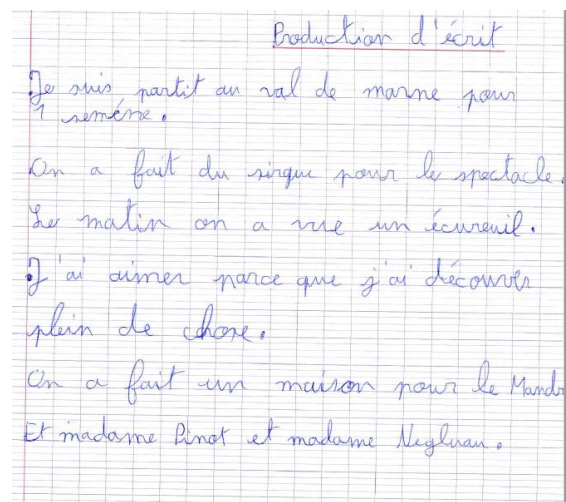 Production d'écrit
Je suis partit au val de marne pour
1 seméne.
On a fait du sirque pour le spectacle.
Le matin on a vue un écureuil.
J'ai aimer parce que j'ai découver
plein de chose.
On a fait un maison pour le Mandr
Et madame Pinot et madame Negluau.